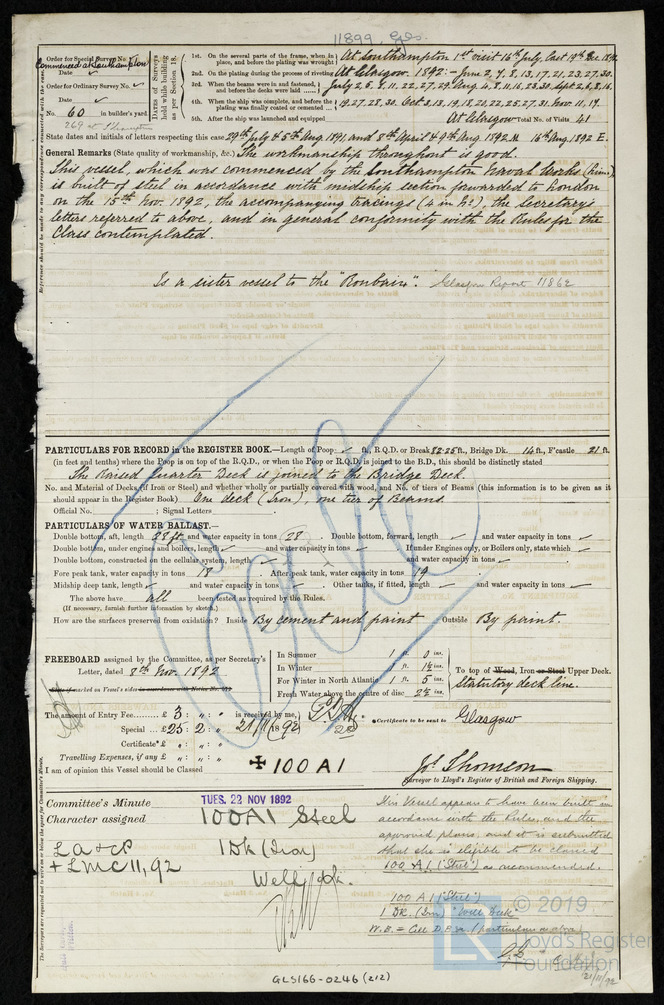 11899 Gls.
Order for Special Survey No.
Commenced at Southampton
Date ✓
Order for Ordinary Survey No. ✓
Date ✓
No. 60 in builder's yard.
269 at Southampton
Dates of Surveys held while building as per Section 18.
1st. On the several parts of the frame, when in place, and before the plating was wrought
2nd. On the plating during the process of riveting
3rd. When the beams were in and fastened, and before the decks were laid
4th. When the ship was complete, and before the plating was finally coated or cemented
5th. After the ship was launched and equipped
At Southampton 1st visit 16th July, Last 19th Dec. 1891
At Glasgow. 1892:- June 2, 7, 8, 13, 17, 21, 23, 27, 30.
July 2, 5, 8, 11, 22, 27, 29. Aug. 4, 8, 11, 16, 23, 30. Sept 2, 6, 8, 16.
19, 27, 28, 30. Oct. 3, 13, 19, 18, 20, 22, 25, 27, 31. Nov. 11, 17.
At Glasgow Total No. of Visits 41
State dates and initials of letters respecting this case 29th July & 5th Aug 1891, and 8th April & 9th Aug. 1892. M 16th Aug. 1892 E.
General Remarks (State quality of workmanship, &c.) The workmanship throughout is good.
This vessel, which was commenced by the Southampton Naval Works (Lim.),
is built of steel in accordance with midship section forwarded to London
on the 15th Nov. 1892, the accompanying tracings (4 in No), the Secretary's
letters referred to above, and in general conformity with the Rules for the
Class contemplated.
Is a sister vessel to the "Roubaix". Glasgow Report 11862
PARTICULARS FOR RECORD in the REGISTER BOOK.—Length of Poop ✓ ft., R.Q.D. or Break 82·25 ft., Bridge Dk. 14 ft., F'castle 21 ft.
(in feet and tenths) where the Poop is on top of the R.Q.D., or when the Poop or R.Q.D. is joined to the B.D., this should be distinctly stated
The Raised Quarter Deck is joined to the Bridge Deck.
No. and Material of Decks, (if Iron or Steel) and whether wholly or partially covered with wood, and No. of tiers of Beams (this information is to be given as it
should appear in the Register Book) One deck (Iron), one tier of Beams.
Official No. ; Signal Letters
PARTICULARS OF WATER BALLAST.—
Double bottom, aft, length 28 ft and water capacity in tons 28. Double bottom, forward, length ✓ and water capacity in tons ✓
Double bottom, under engines and boilers, length ✓ and water capacity in tons ✓ If under Engines only, or Boilers only, state which ✓
Double bottom, constructed on the cellular system, length ✓ and water capacity in tons ✓
Fore peak tank, water capacity in tons 18. After peak tank, water capacity in tons 19
Midship deep tank, length ✓ and water capacity in tons ✓ Other tanks, if fitted, length ✓ and water capacity in tons ✓
The above have all been tested as required by the Rules.
(If necessary, furnish further information by sketch.)
How are the surfaces preserved from oxidation? Inside By cement and paint Outside By paint.
FREEBOARD assigned by the Committee, as per Secretary's
Letter, dated 8th Nov. 1892
In Summer 1 ft. 0 ins.
In Winter 1 ft. 1½ ins.
For Winter in North Atlantic 1 ft. 5 ins.
Fresh Water above the centre of disc 2½ ins.
To top of Wood, Iron or Steel Upper Deck.
Statutory deck line.
The amount of Entry Fee £ 3 : „ : „ is received by me,
Special £ 25 : 2 : „ 21/11/1892
Certificate* £ „ : „ : „
Travelling Expenses, if any £ „ : „ : „
*Certificate to be sent to Glasgow
I am of opinion this Vessel should be Classed ✠ 100 A1
Js. Thomson
Surveyor to Lloyd's Register of British and Foreign Shipping.
Committee's Minute TUES. 22 NOV 1892
Character assigned 100A1 Steel
1Dk (Iron)
Well Dk.
LA & CP
+ LMC 11, 92
This Vessel appears to have been built in
accordance with the Rules, and the
approved plans, and it is submitted
that she is eligible to be classed
100 A1. ("Steel") as recommended.
100 A1 ("Steel")
1 DK. (Iron) "Well Deck"
W.B. = Cell D.B. (particulars as above)
21/11/92
© 2019
Lloyd's Register
Foundation
GLS166-0246 (212)